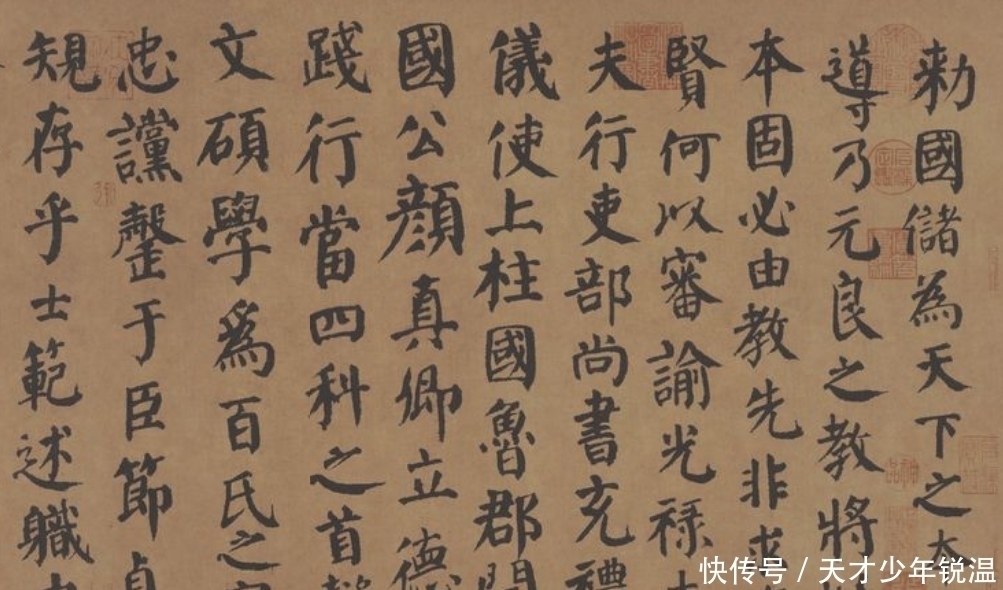 勅國儲為天下之
導乃元良之教將
本固必由教先非求
賢何以審諭光祿
夫行吏部尚書充禮
儀使上柱國魯郡開
國公顏真卿立德
踐行當四科之首
文碩學爲百氏之
忠讜罄于臣節貞
規存乎士範述職
快传号 / 天才少年锐温